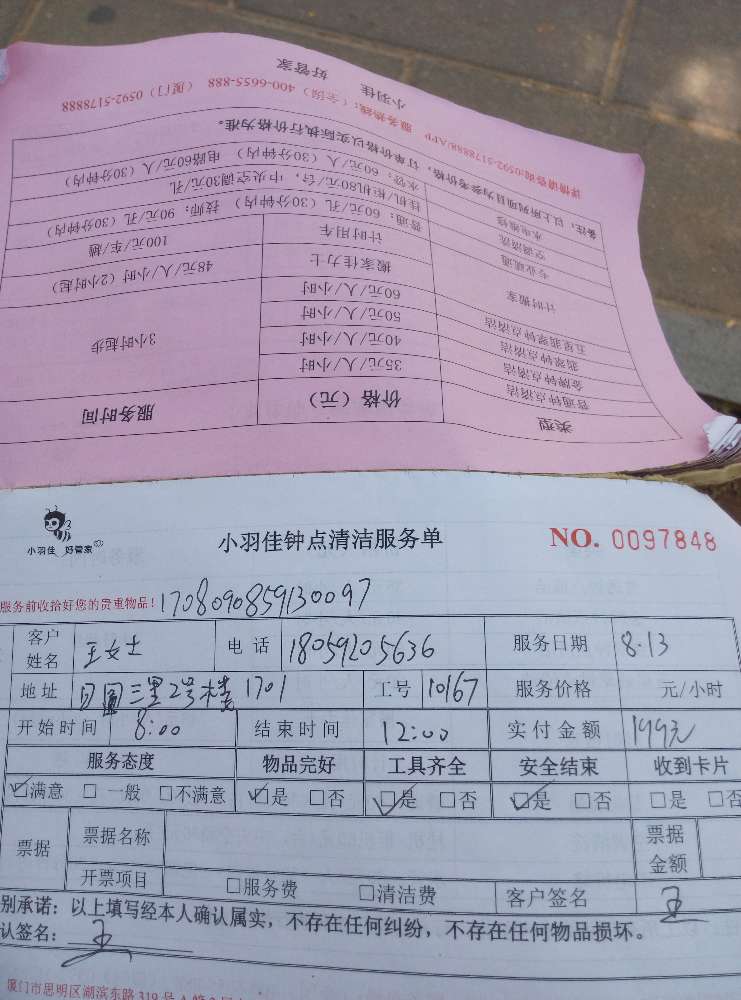 小羽佳 好管家
服务热线：（全国）400-6655-888 （厦门）0592-5178888
详情请咨询:0592-5178888/APP
备注：以上所列项目为参考价格，订单价格以实际执行价格为准。
水电维修 水管：60元/人（30分钟内） 电路60元/人（30分钟内）
空调清洗 挂机/柜机80元/台，中央空调30元/孔
专业疏通 普通：60元/孔（30分钟内） 技师：90元/孔（30分钟内）
计时搬家 计时用车 100元/车/趟
搬家佳力士 48元/人/小时（2小时起）
五星翡翠钟点清洁 60元/人/小时 3小时起步
翡翠钟点清洁 50元/人/小时
金牌钟点清洁 40元/人/小时
普通钟点清洁 35元/人/小时
类型 价格（元） 服务时间
小羽佳 好管家
小羽佳钟点清洁服务单 NO. 0097848
服务前收拾好您的贵重物品! 1708090859130097
客户姓名 王女士 电话 18059205636 服务日期 8.13
地址 三里2号楼1701 工号 10167 服务价格 元/小时
开始时间 8:00 结束时间 12:00 实付金额 199元
服务态度 物品完好 工具齐全 安全结束 收到卡片
☑满意 □一般 □不满意 ☑是 □否 ☑是 □否 ☑是 □否 □是 □否
票据 票据名称 票据金额
开票项目 □服务费 □清洁费 客户签名 王
别承诺：以上填写经本人确认属实，不存在任何纠纷，不存在任何物品损坏。
认签名：王
厦门市思明区湖滨东路319号A幢